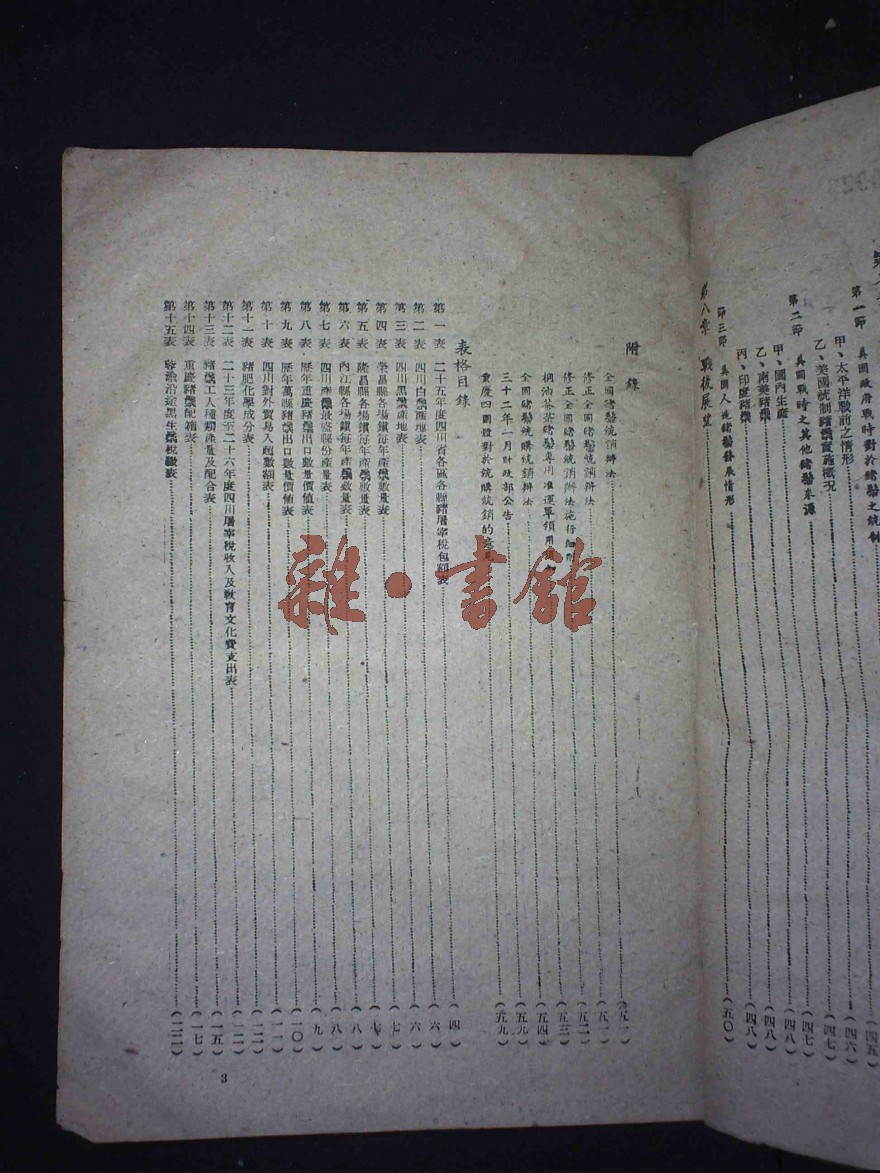 第一節　美國政府戰時對於豬鬃之統制
甲、太平洋戰前之情形（四六）
乙、美國統制豬鬃實施概況（四七）
第二節　美國戰時之其他豬鬃來源（四七）
甲、國內生產（四八）
乙、南美豬鬃（四八）
丙、印度豬鬃（四八）
第三節　美國人造豬鬃發展情形
第八章　戰後展望（五〇）
附錄
全國豬鬃統銷辦法（五一）
修正全國豬鬃統銷辦法（五一）
修正全國豬鬃統銷辦法施行細則（五二）
桐油茶葉豬鬃專用准運單領用（五三）
全國豬鬃統購統銷辦法（五四）
三十二年一月財政部公告（五九）
重慶四團體對於統購統銷的（五九）
表格目錄
第一表　二十五年度四川省各區各縣豬屠宰稅包額表（四）
第二表　四川白鬃產地表（六）
第三表　四川黑鬃產地表（六）
第四表　榮昌縣各場鎮每年產鬃數量表（七）
第五表　隆昌縣各場鎮每年產鬃數量表（七）
第六表　內江縣各場鎮每年產鬃數量表（八）
第七表　四川產鬃最盛縣份產量表（八）
第八表　歷年重慶豬鬃出口數量價值表（九）
第九表　歷年萬縣豬鬃出口數量價值表（一〇）
第十表　四川對外貿易入超數額表（一一）
第十一表　豬肥化學成分表（一二）
第十二表　二十三年度至二十六年度四川屠宰稅收入及教育文化費支出表（一二）
第十三表　豬鬃工人種類產量及配合表（一五）
第十四表　重慶豬鬃配箱表（一七）
第十五表　蓉渝沿途黑生鬃稅繳表（二二）
3
雜·書館